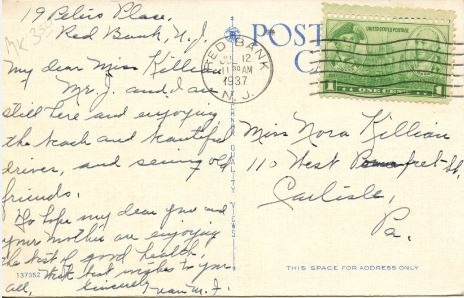 19 Peters Place,
Red Bank, N.J.
MK 35¢
My dear Miss Killian
Mr. J. and I are
still here and enjoying
the beach and beautiful
drives, and seeing old
friends.
So hope my dear you and
your mother are enjoying
the best of good health.
With best wishes to you
all,
Sincerely
137352
POST
C
RED BANK
12
11 30 AM
1937
N.J.
UNITED STATES POSTAGE
1 ONE CENT 1
Miss Nora Killian
110 West Pomfret St.
Carlisle,
Pa.
THIS SPACE FOR ADDRESS ONLY